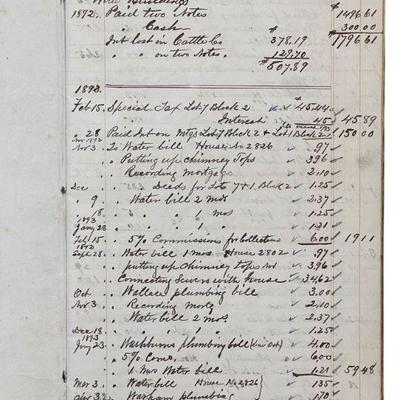 1872. Paid two Notes 1496.61
" Cash 300.00
Int lost in Cattle Co 378.19 1796.61
" " on two Notes. 129.70
$507.89
1893.
Feb 15 Special Tax Lot 7 Block 2 45.44
Interest 45 45.89
" 28 Paid Int on Mtgs Lot 7 Block 2 & Lot 1 Block 2 150.00
Nov 3 Water bill House No 2826 .97
" Putting up Chimney Tops 3.96
" Recording mortgage 2.10
Dec " Deeds for Lots 7 & 1 Block 2 1.25
" 9 " Water bill 2 mos 2.37
" 18 " " 1 mos 1.25
1893
Jany 23 " " " 1.21
Feb 15 " 5% Commissions for Collections 6.00 19.11
1892
Sept 28 " Water bill 1 mos House 2802 .97
" putting up Chimney tops 3.96
" Connecting Sewers with house 34.62
Oct " Wallace plumbing bill 3.00
Nov 3 " Recording Mortg 2.10
Water bill 2 mos. 2.37
Dec 18 " " 1 " 1.25
1893
Jany 23 " Washburn plumbing bill 4.00
" 5% Coms. 6.00
" 1 Mos Water bill 1.21 59.48
Mar 3 " Water bill House No 2826 1.35
plumbing 1.70